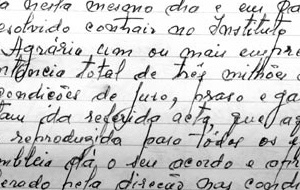 a nesta mesmo dia e em
esolvido contrair no Instituto
Agrária um ou mais empre
ntância total de três milhões
condições de juro, praso e ga
tam da referida acta, que aq
reproduzida para todos os e
mbleia dá o seu acordo e apr
pela direcção nas cond